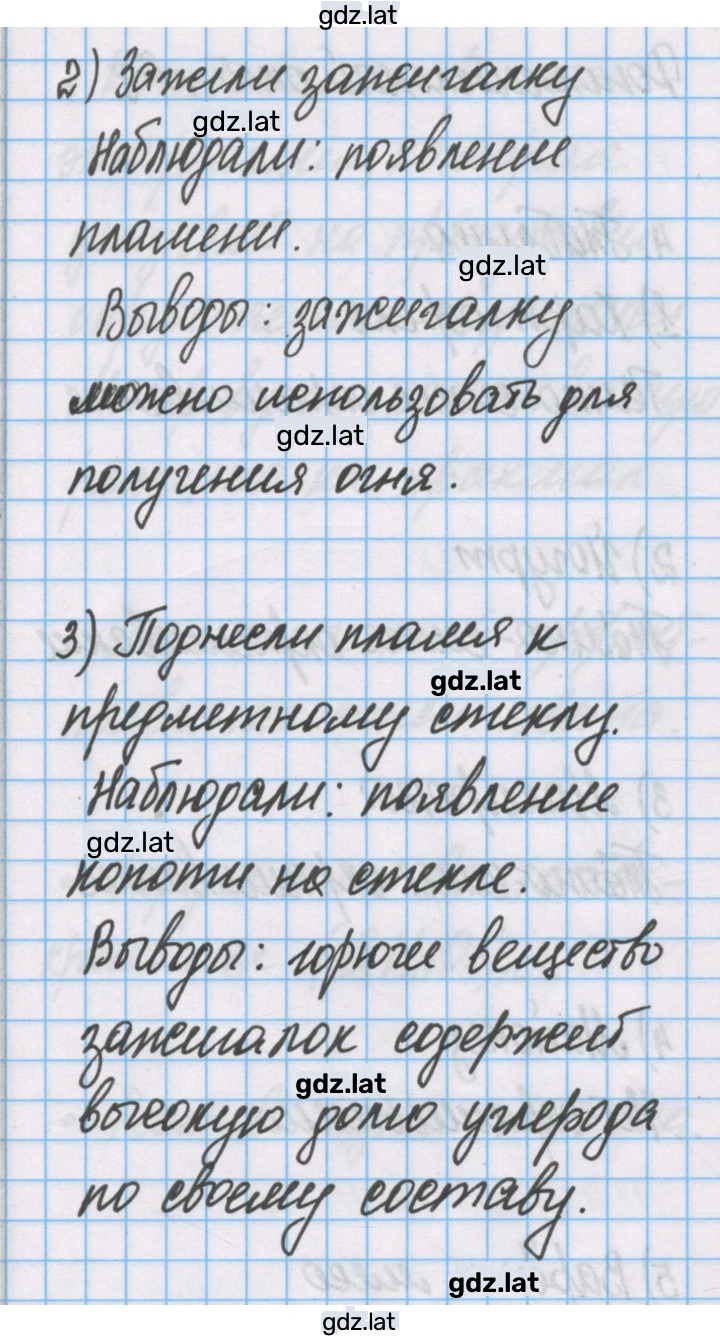 gdz.lat
2) Зажгли зажигалку
gdz.lat
Наблюдали: появление
пламени.
gdz.lat
Выводы: зажигалку
можно использовать для
gdz.lat
получения огня.
3) Поднесли пламя к
gdz.lat
предметному стеклу.
Наблюдали: появление
gdz.lat
копоти на стекле.
Выводы: горючее вещество
зажигалок содержит
gdz.lat
высокую долю углерода
по своему составу.
gdz.lat
gdz.lat